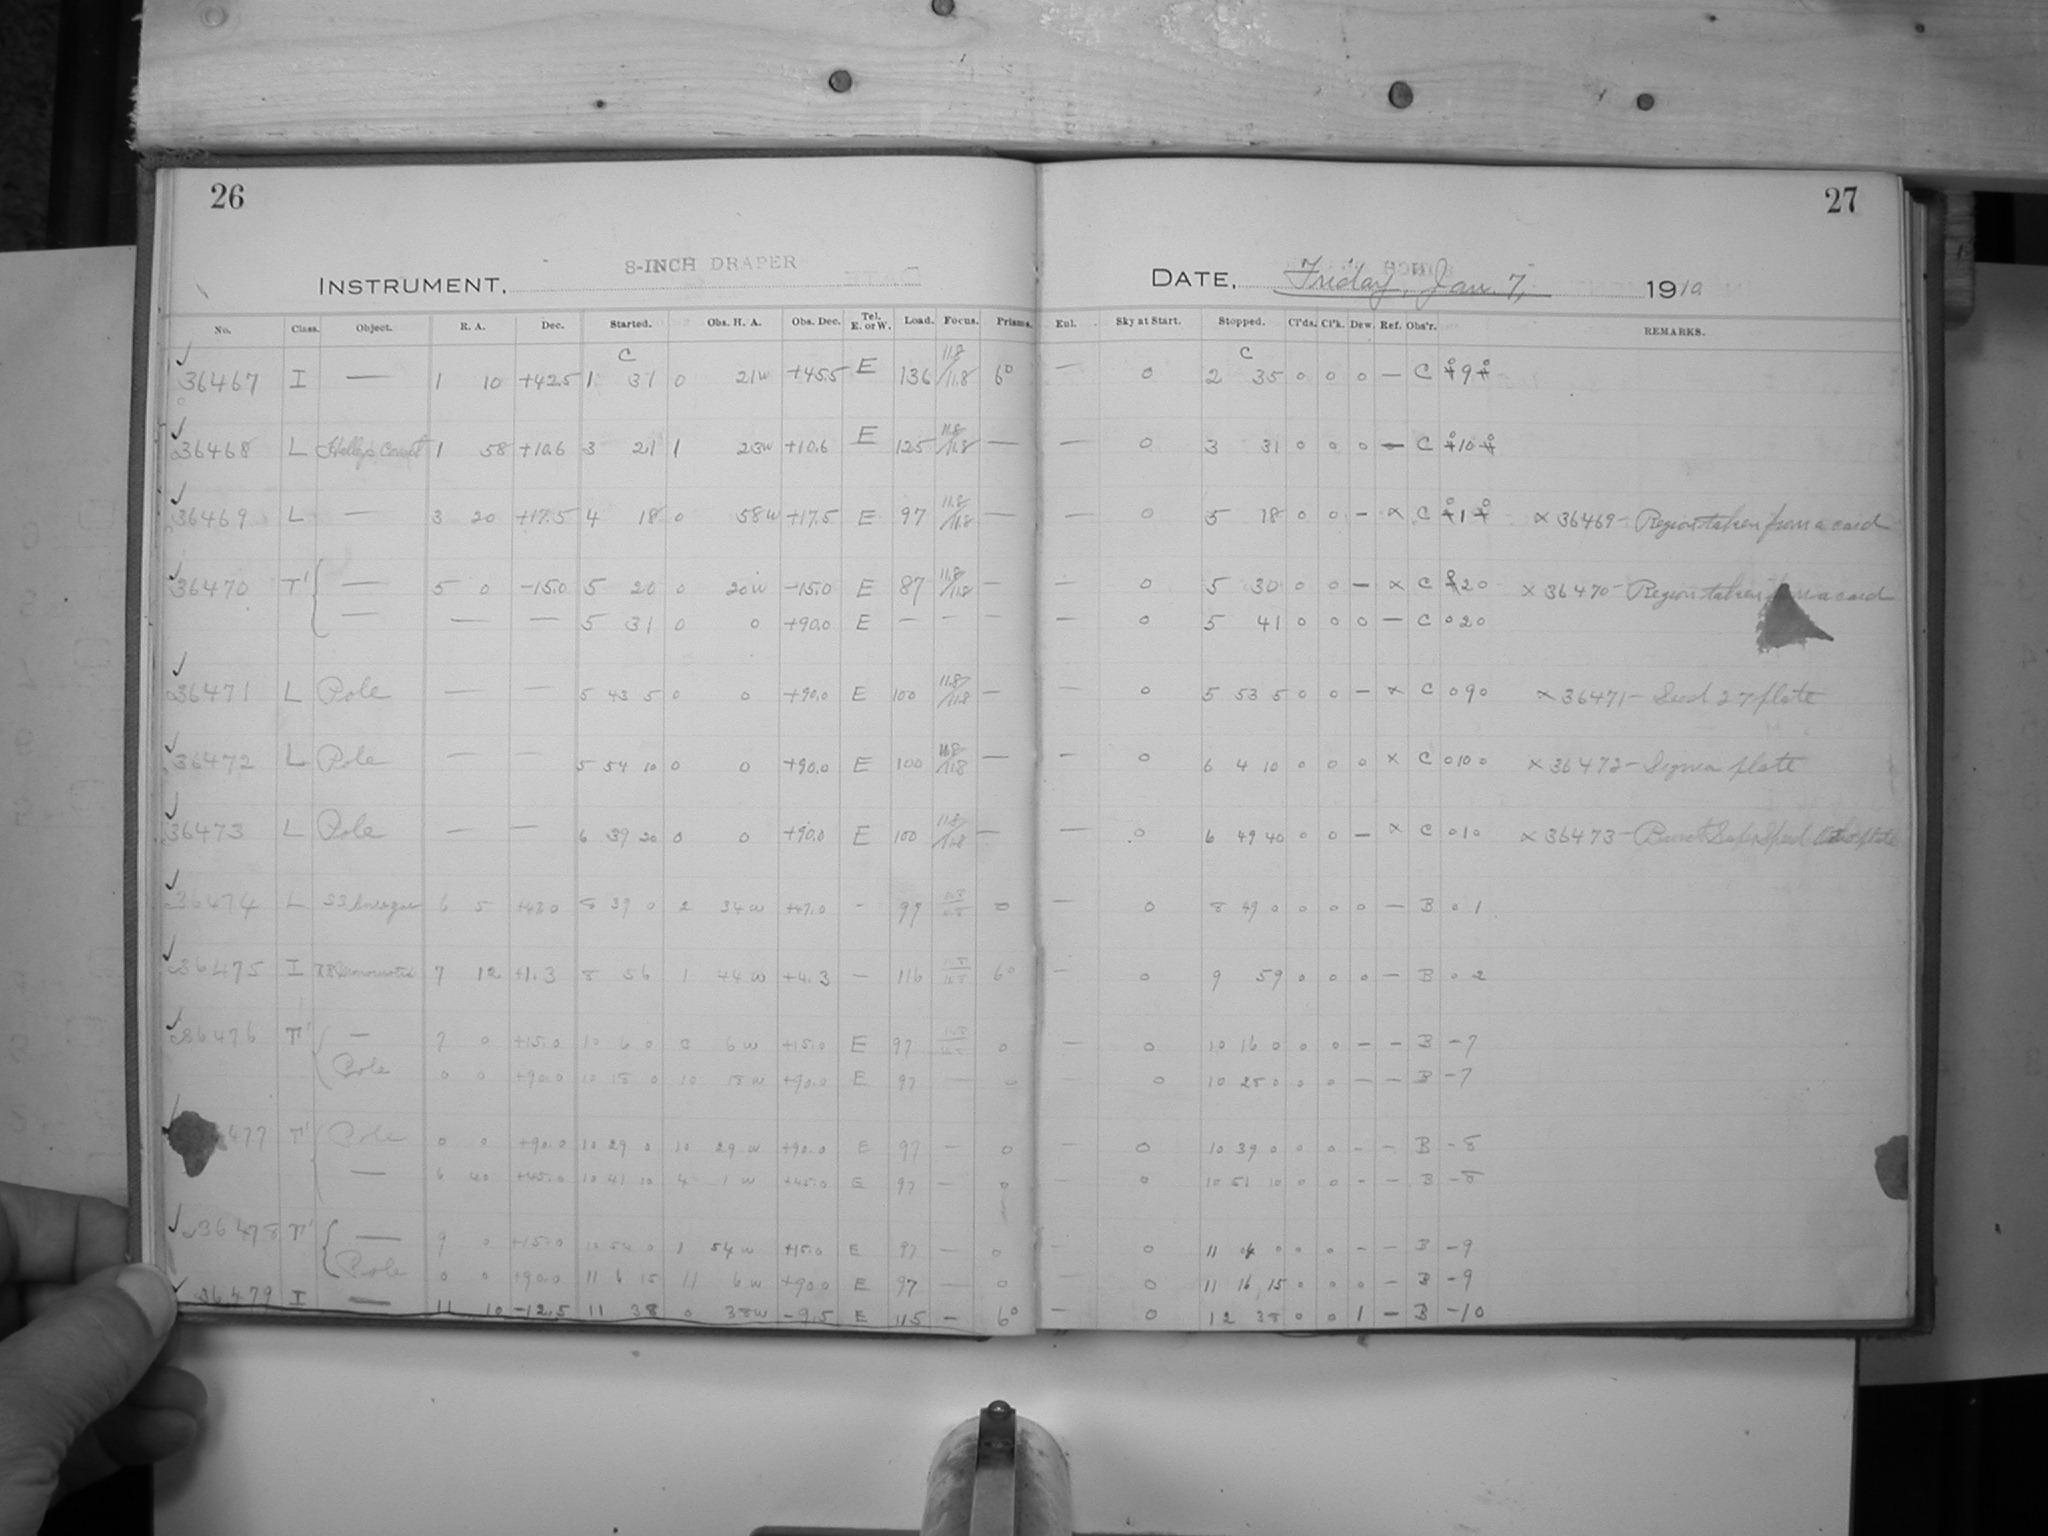 26
27
INSTRUMENT. 8-INCH DRAPER
DATE, Friday, Jan. 7, 1910
No. Class. Object. R. A. Dec. Started. Obs. H. A. Obs. Dec. Tel. E. or W. Load. Focus. Prisms. Eul. Sky at Start. Stopped. Cl'ds. Cl'k. Dew. Ref. Obs'r. REMARKS.
C C
36467 I — 1 10 +42.5 1 31 0 21w +45.5 E 136 11.8/11.8 6° — 0 2 35 0 0 0 — C 9
36468 L Halley's Comet 1 58 +10.6 3 21 1 23w +10.6 E 125 11.8/11.8 — — 0 3 31 0 0 0 — C 10
36469 L — 3 20 +17.5 4 18 0 58w +17.5 E 97 11.8/11.8 — — 0 5 18 0 0 — x C 1 x 36469 — Region taken from a card
36470 T' — 5 0 -15.0 5 20 0 20w -15.0 E 87 11.8/11.8 — — 0 5 30 0 0 — x C 20 x 36470 — Region taken from a card
— — — 5 31 0 0 +90.0 E — — — — 0 5 41 0 0 0 — C 020
36471 L Pole — — 5 43 5 0 0 +90.0 E 100 11.8/11.8 — — 0 5 53 5 0 0 — x C 090 x 36471 — Seed 27 plate
36472 L Pole — — 5 54 10 0 0 +90.0 E 100 11.8/11.8 — — 0 6 4 10 0 0 0 x C 0100 x 36472 — Sigma plate
36473 L Pole — — 6 39 20 0 0 +90.0 E 100 11.8/11.8 — — 0 6 49 40 0 0 — x C 010 x 36473 — plate
36474 L 6 5 8 39 0 2 34w +47.0 - 99 0 — 0 8 49 0 0 0 0 — B 0 1
36475 I 7 12 +1.3 8 56 1 44w +4.3 — 116 6° — 0 9 59 0 0 0 — B 0 2
36476 T' — 7 0 +15.0 10 6 0 0 6w +15.0 E 97 0 — 0 10 16 0 0 0 — — B -7
Pole 0 0 +90.0 10 18 0 10 18w +90.0 E 97 — 0 — 0 10 28 0 0 0 — — B -7
477 T' Pole 0 0 +90.0 10 29 0 10 29w +90.0 E 97 — 0 — 0 10 39 0 0 0 - - B -8
— 6 40 +45.0 10 41 10 4 1w +45.0 E 97 — 0 — 0 10 51 10 0 0 - - B -8
36478 T' — 9 0 +15.0 10 54 0 1 54w +15.0 E 97 — 0 0 11 04 0 0 0 - - B -9
Pole 0 0 +90.0 11 6 15 11 6w +90.0 E 97 — 0 0 11 16 15 0 0 0 - B -9
36479 I — 11 10 -12.5 11 38 0 38w -9.5 E 115 — 6° — 0 12 38 0 0 1 — B -10